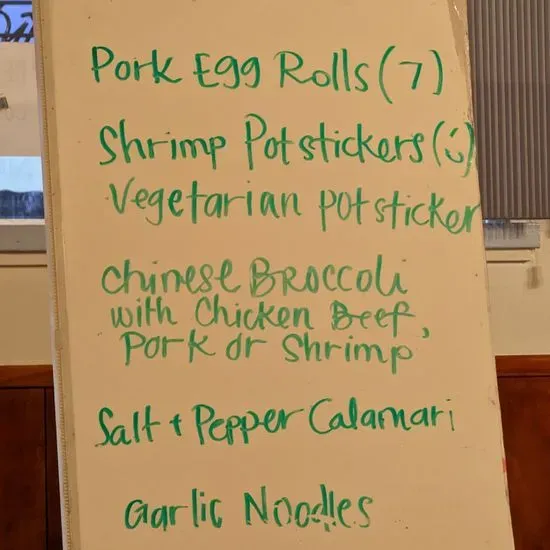 Pork Egg Rolls (7)
Shrimp Potstickers (6)
Vegetarian potsticker
Chinese Broccoli
with Chicken Beef,
Pork or Shrimp
Salt + Pepper Calamari
Garlic Noodles